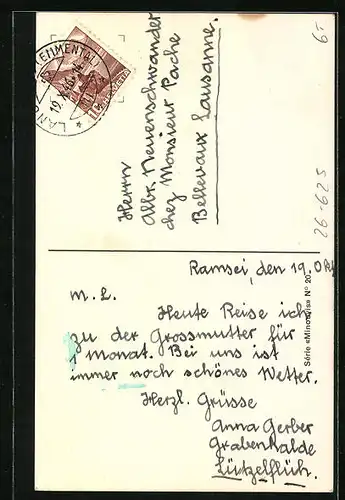 Herrn
Albr. Neuenschwander
chez Monsieur Pache
Bellevaux Lausanne.
6.-
26-625
Ramsei, den 19. Okt
M. L.
Heute Reise ich
zu der Grossmutter für
1 Monat. Bei uns ist
immer noch schönes Wetter.
Herzl. Grüsse
Anna Gerber
Grabenhalde
Lützelflüh.
Série «Minouvis» Nº 20
HELVETIA